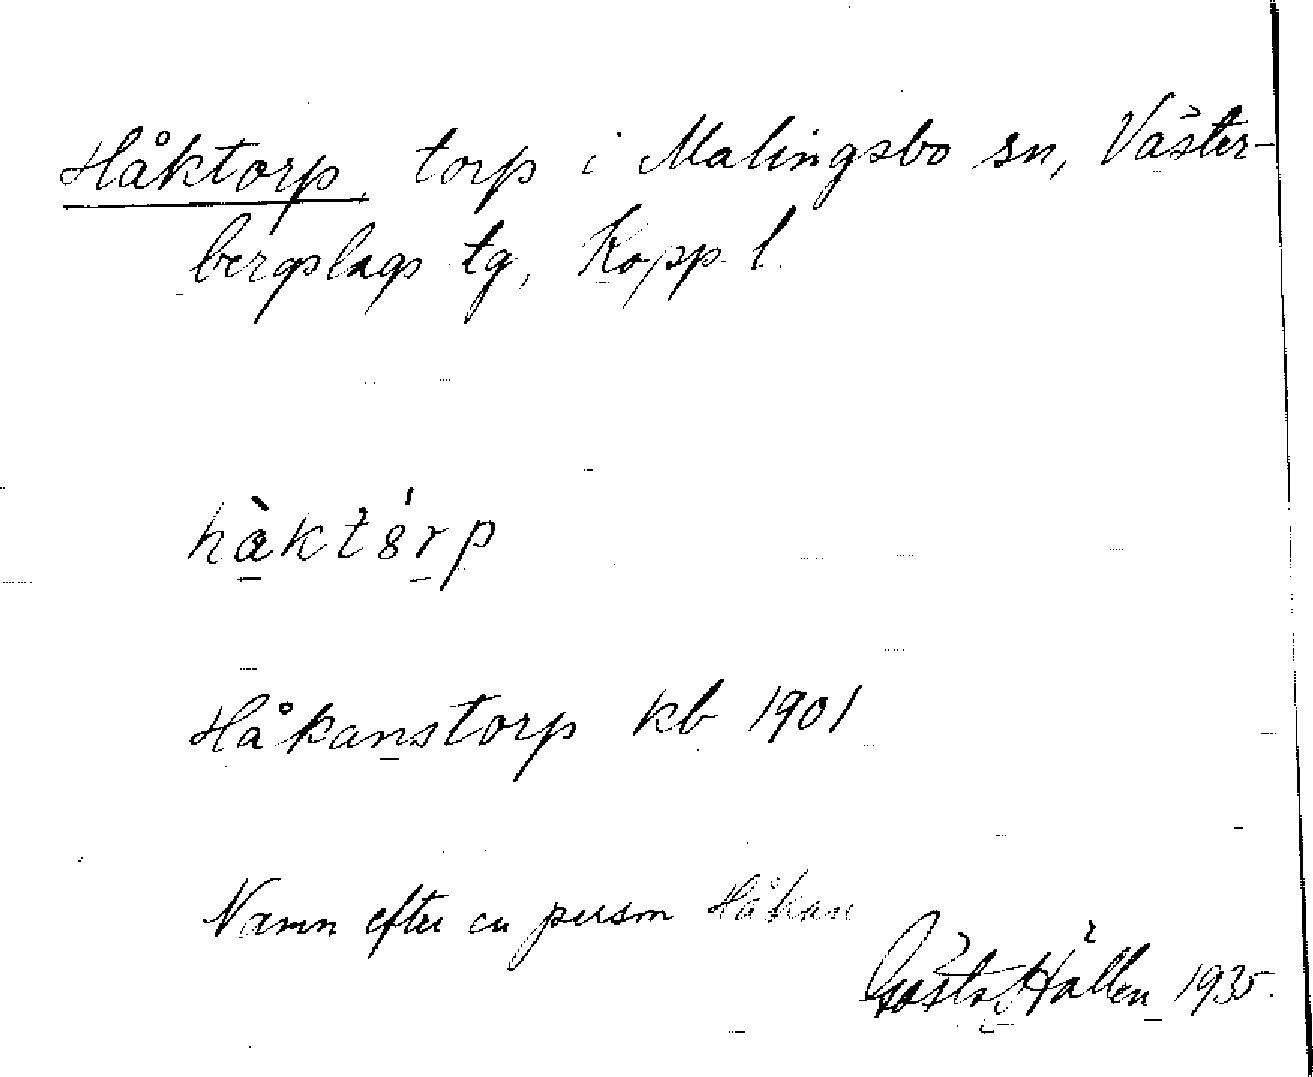 Håktorp, torp i Malingsbo sn, Väster-
bergslags tg, Kopp. l.
Håkanstorp kb 1901
Namn efter en person Håkan
Gösta Hållen 1935.